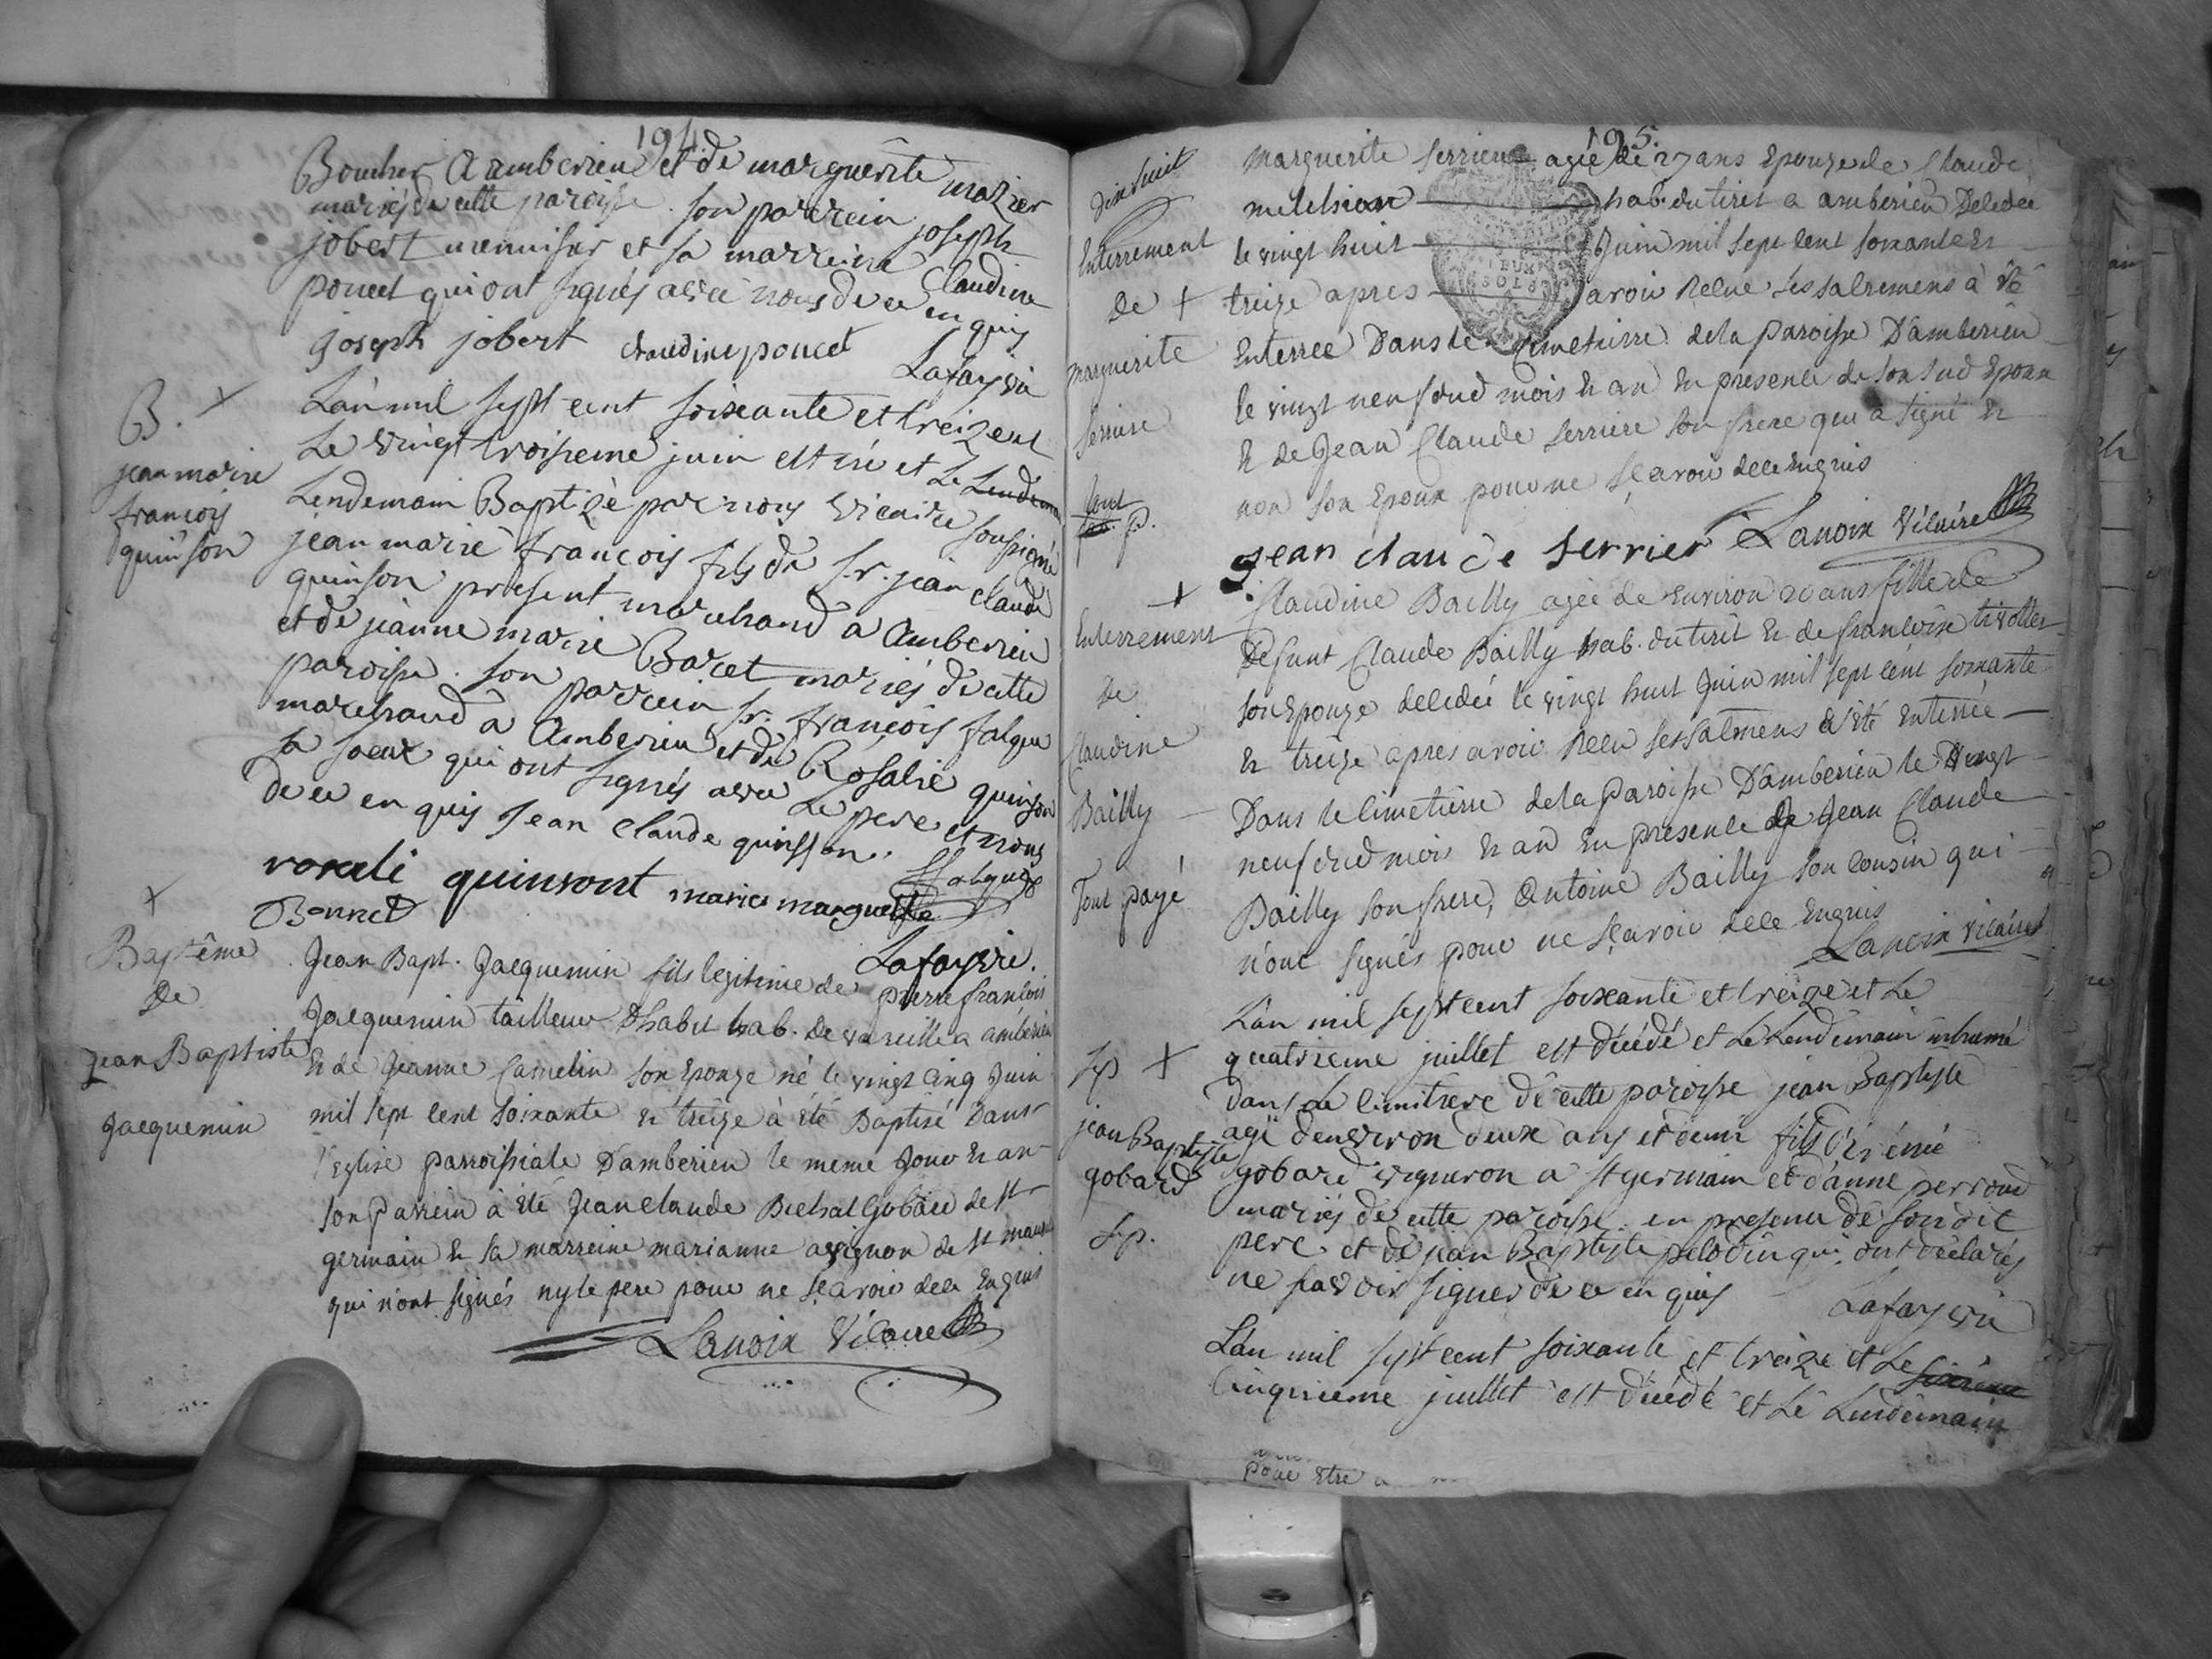 194.
Boucher a amberieu et de marguerite mazier
mariés de cette paroisse. son parrein joseph
jobert menuisier et sa marreine Claudine
poncet qui ont signés avec nous de ce enquis
joseph jobert claudine poncet
Lafay vic
B. +
jean marie
francois
quinson
L'an mil sept cent soixante et treize et
Le vingt troisieme juin est né et Le Lendemain
Lendemain Baptizé par nous vicaire soussigné
jean marie francois fils de sr. jean claude
quinson présent marchand a Amberieu
et de jeanne marie Barcet mariés de cette
paroisse. son parrein sr. francois falque
marchand a Amberieu et de Rosalie quinson
sa soeur qui ont signés avec Le pere et nous
de ce en quis Jean Claude quinsson. f falque
rozali quinsont marie marguerite
Bonnet
Lafay vic.
+
Baptême
De
jean Baptiste
Jacquemin
Jean Bapt. Jacquemin fils legitime de pierre francois
Jacquemin tailleur d'habit hab. de vareille a amberieu
et de Jeanne Camelin son Epouze né le vingt cinq Juin
mil sept cent soixante et treize à été Baptisé Dans
l'Eglise parroissiale D'amberieu le meme jour et an
son parrein à été Jean claude Gobard de st
germain et sa marreine marianne avignon de st
qui n'ont signés ny le pere pour ne sçavoir de ce Enquis
Lanoix Vicaire
195.
dix huit
Enterrement
De +
marguerite
Serriere
tout
p.
Marguerite Serriere agée de 27 ans Epouze de Claude
melchior hab. du tiret a amberieu Decedée
le vingt huit Juin mil sept cent soixante et
treize apres avoir Recue ses sacremens à été
Enterrée Dans le Cimetierre de la Paroisse D'amberieu
le vingt neuf dud mois et an en presence de son sud Epoux
et de Jean Claude Serriere son frere qui a signé et
non son Epoux pour ne sçavoir de ce Enquis
jean claude serrier Lanoix Vicaire
+
Enterrement
De
Claudine
Bailly
Tout payé
Claudine Bailly agée de Environ 20 ans fille de
Defunt Claude Bailly hab. du tiret et de francoise
son Epouze decedée le vingt huit Juin mil sept cent soixante
et treize apres avoir Recu ses sacremens a été Enterrée
Dans le cimetierre de la Paroisse D'amberieu le vingt
neuf dud mois et an En presence de Jean Claude
Bailly son frere, Antoine Bailly son cousin qui
n'ont signés pour ne sçavoir de ce Enquis
Lanoix vicaire
Sep +
jean Baptyste
gobard
s. p.
L'an mil sept cent soixante et treize et Le
quatrieme juillet est décédé et Le Lendemain inhumé
dans Le cimitiere de cette paroisse jean Baptyste
agé d'environ deux ans et demi fils d'
gobard vigneron a st germain et d'anne perroud
mariés de cette paroisse. en presence de son dit
pere et de jean Baptyste pelodin qui ont déclarés
ne savoir signer de ce en quis
Lafay vic
L'an mil sept cent soixante et treize et Le sixieme
Cinquieme juillet est décédé et Le Lendemain
pour Etre